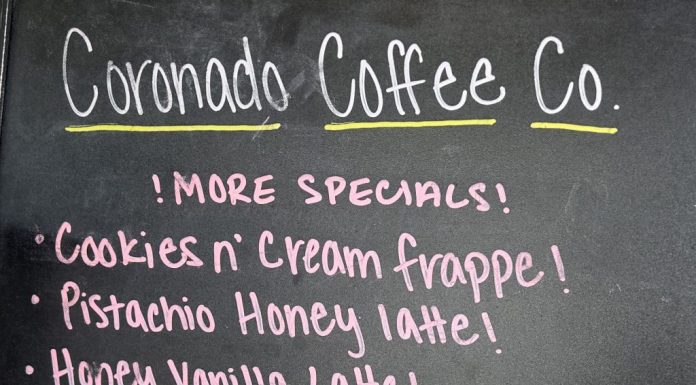 Coronado Coffee Co.
!MORE SPECIALS!
• Cookies n' Cream frappe!
• Pistachio Honey latte!
• Honey Vanilla Latte!